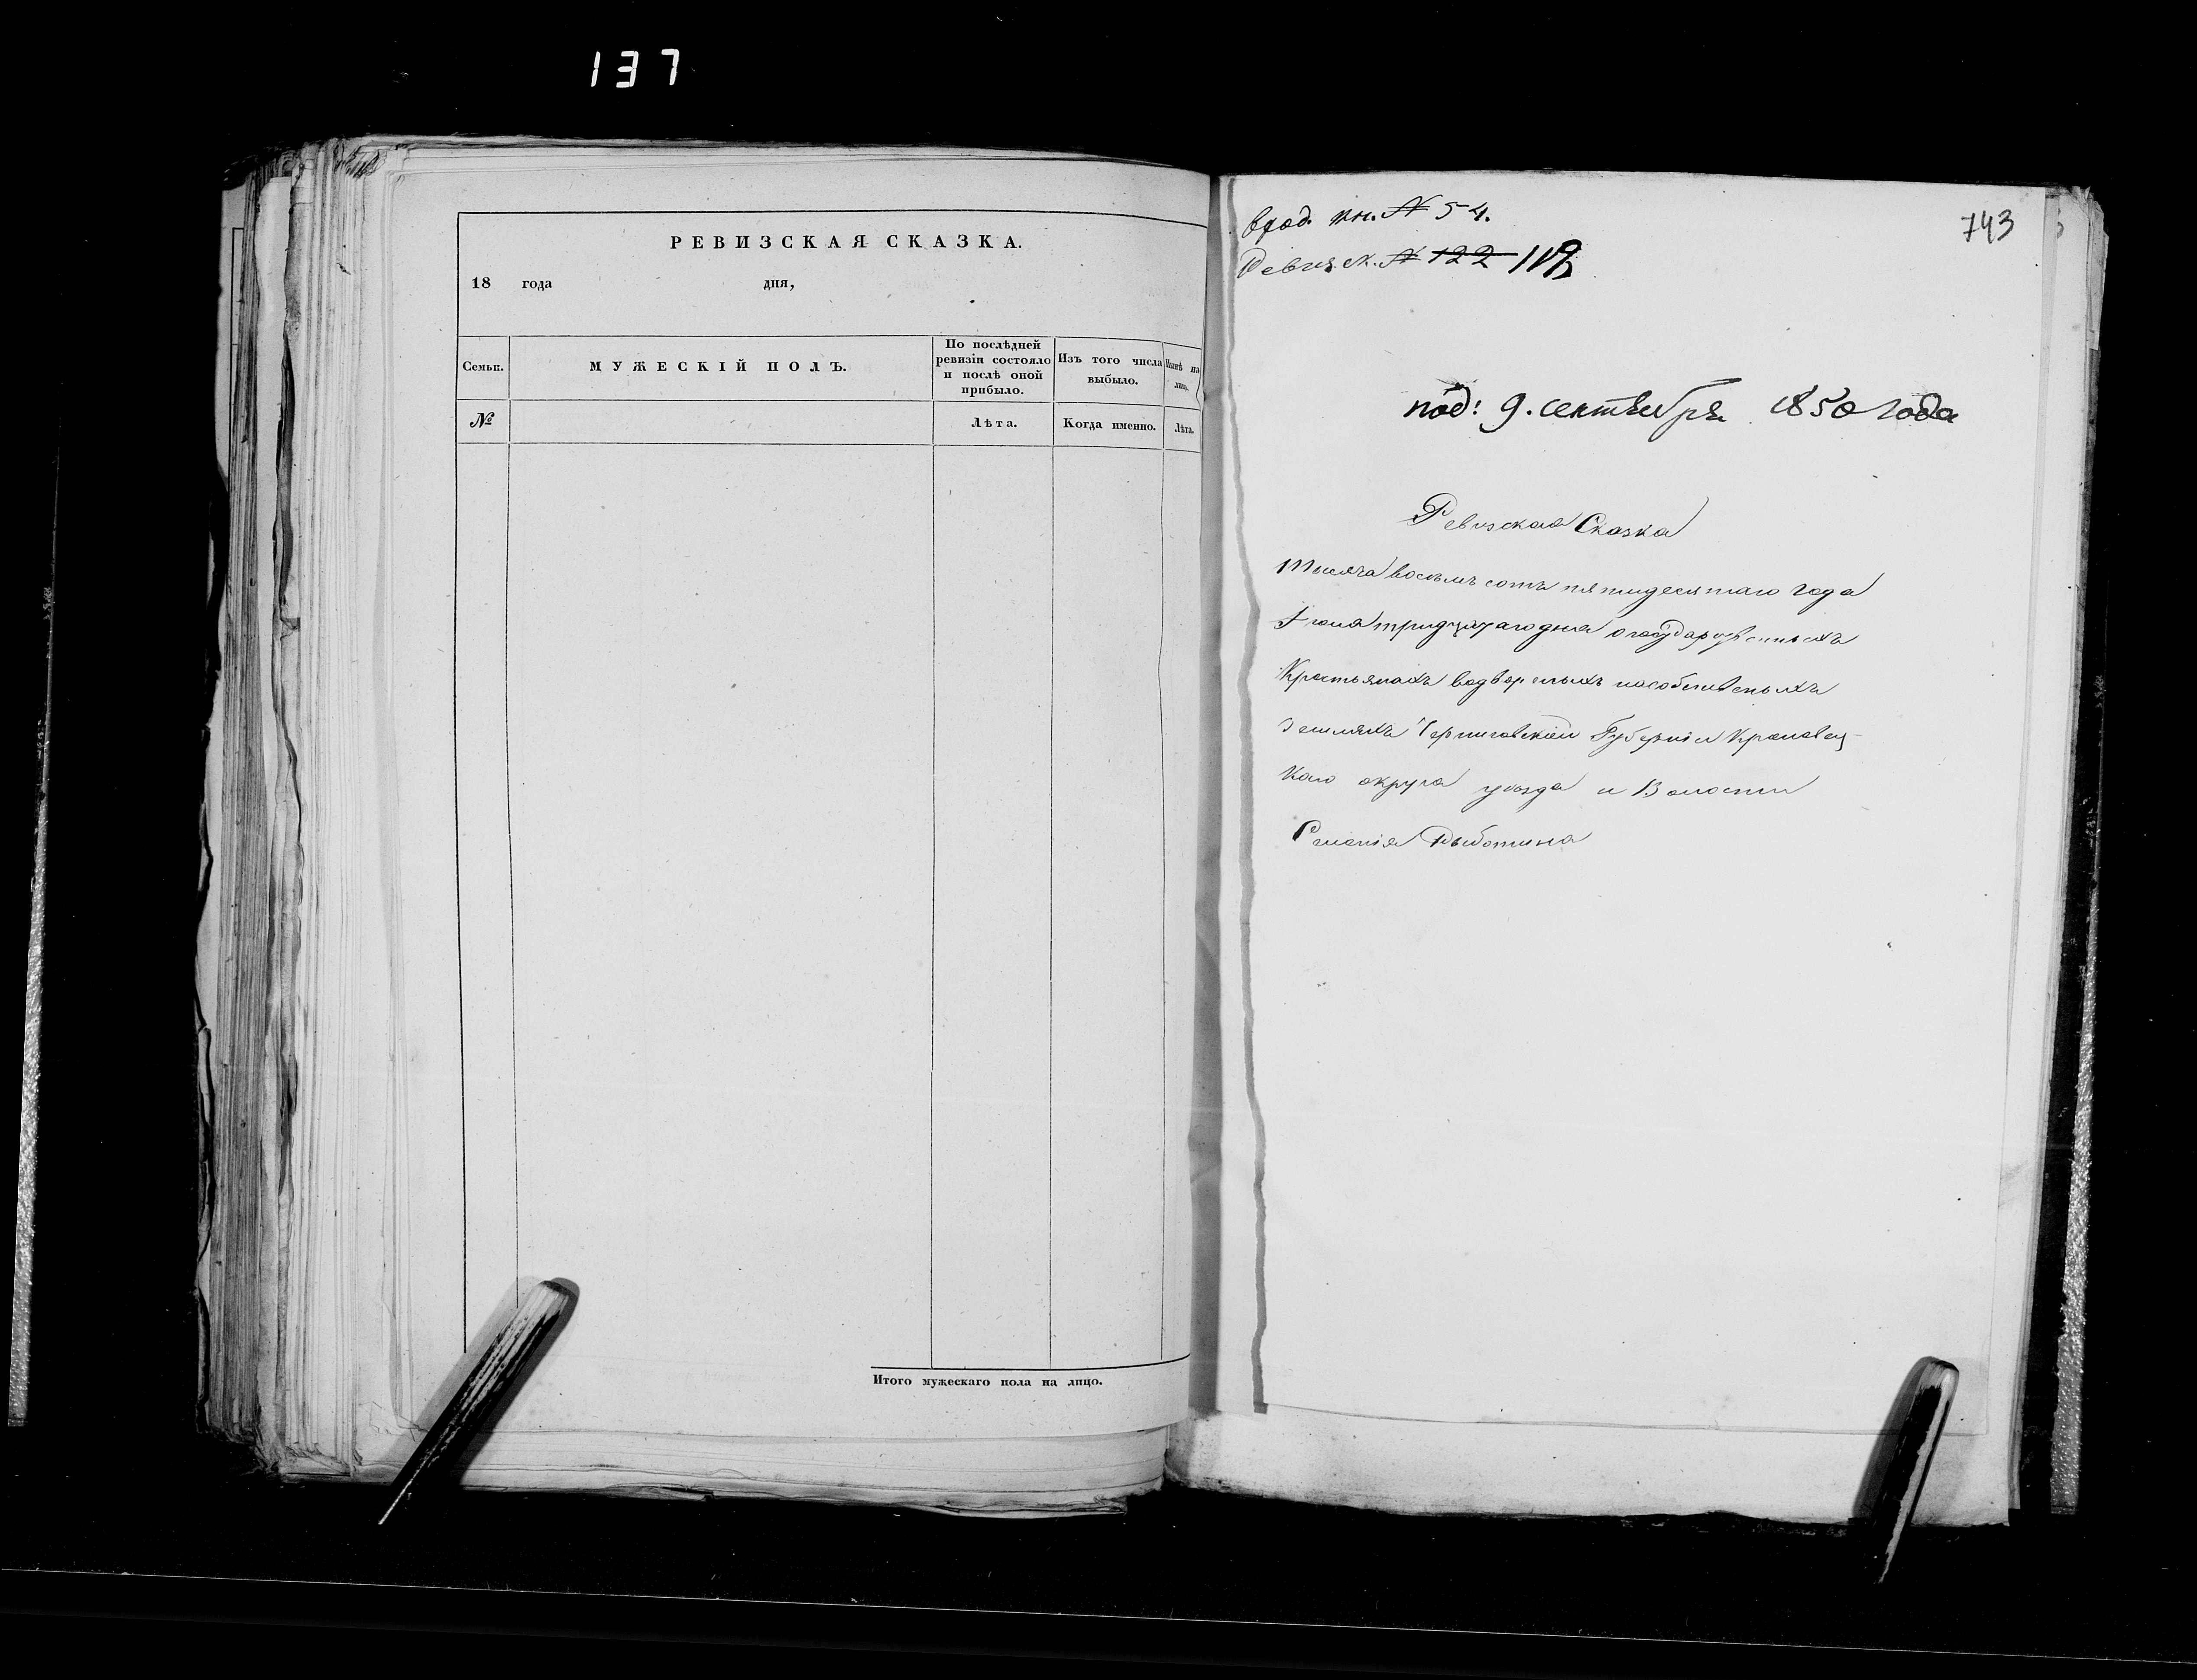 137
РЕВИЗСКАЯ СКАЗКА.
18 года дня,
Семьи.
МУЖЕСКІЙ ПОЛЪ.
По послѣдней
ревизіи состояло
и послѣ оной
прибыло.
Изъ того числа
выбыло.
Нынѣ на
лицо.
№
Лѣта.
Когда именно.
Лѣта.
Итого мужескаго пола на лицо.
743
вход. кн. № 54.
Ревиз. ск. № 122
под: 9. сентября 1850 года
Ревизская Сказка
Тысяча восемь сотъ пятидесятаго года
Іюля тридцатаго дня о государственныхъ
Крестьянахъ водворенныхъ на собственныхъ
земляхъ Черниговской Губерніи Кролевец-
каго округа уѣзда и Волости
Селенія Рыботина